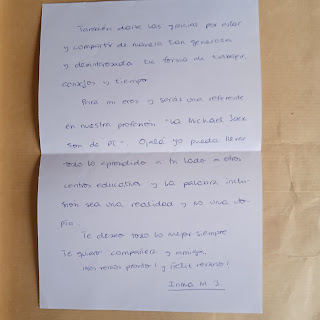 También darte las gracias por estar
y compartir de manera tan generosa
y desinteresada tu forma de trabajar,
consejos y tiempo.
Para mi eres y serás una referente
en nuestra profesión "La Michael Jack
son de PT". Ojalá yo pueda llevar
todo lo aprendido a tu lado a otros
centros educativos y la palabra inclu-
sión sea una realidad y no una uto-
pía.
Te deseo todo lo mejor siempre
Te quiero compañera y amiga,
¡Nos vemos pronto! y ¡feliz verano!
Inma M J.